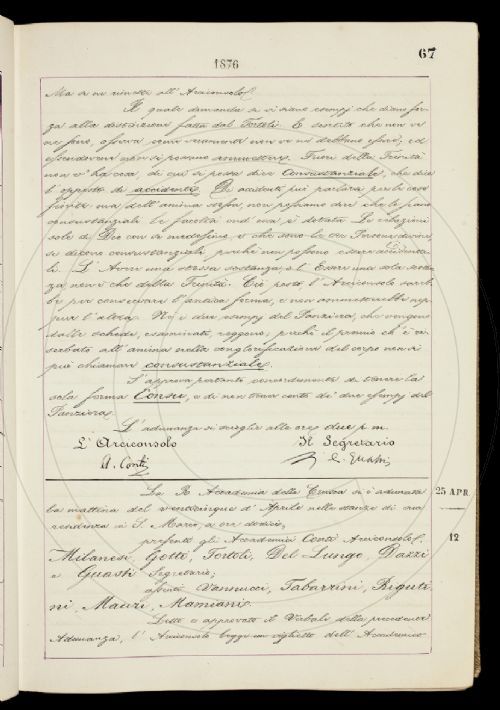 1876
67
Ma se ne rimette all'Arciconsolo.
Il quale domanda se vi siano esempi che diano for-
za alla distinzione fatta dal Tortoli. E sentito che non ve
ne sono, osserva come veramente non ve ne debbano essere, ed
essendovi non si possano ammettere. Fuori della Trinità
non v'ha cosa, di cui si possa dire Consustanziale, che dice
l'opposto di accidente. Di accidenti può parlarsi per le cose
finite: ma dell'anima stessa, non possiamo dire che le siano
consustanziali le facoltà ond'essa è dotata. Le relazioni
sole di Dio con sè medesimo e che sono le tre Persone divine
si dicono consustanziali, perchè non possono essere accidenta-
li. L'Avere una stessa sostanza, e l'Essere una sola sostan-
za non è che della Trinità. Ciò posto, l'Arciconsolo sareb-
be per conservare l'antica forma, e non ammetterebbe nep-
pure l'altra. Nè i due esempj del Panziera, che vengono
dalle schede, esaminati, reggono; perchè il premio ch'è ri-
serbato all'anima nella conglorificazione del corpo non si
può chiamare consustanziale.
S'approva pertanto concordemente di tenere la
sola forma Consu, e di non tener conto di due esempj del
Panziera.
L'adunanza si scioglie alle ore due p. m.
L'Arciconsolo Il Segretario
A. Conti C. Guasti
La R. Accademia della Crusca si è adunata 25 APR.
la mattina del venticinque d'Aprile nelle stanze di sua
residenza a S. Marco, a ore dodici; 12
presenti gli Accademici Conti Arciconsolo,
Milanesi, Gotti, Tortoli, Del-Lungo, Dazzi
e Guasti Segretario;
assenti Vannucci, Tabarrini, Riguti-
ni, Mauri, Mamiani.
Letto e approvato il Verbale della precedente
Adunanza, l'Arciconsolo legge un viglietto dell'Accademico